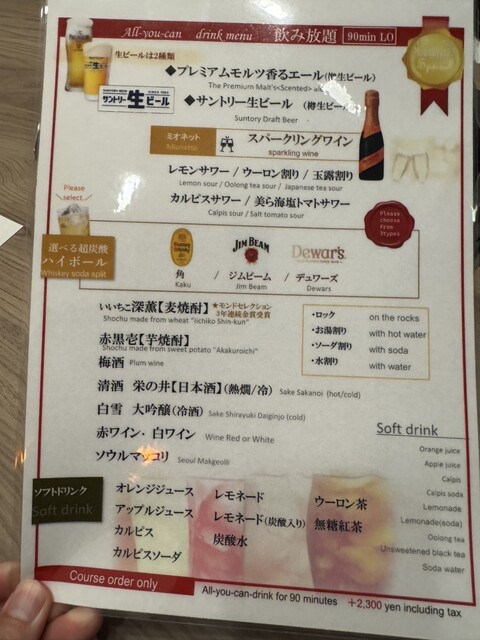 All-you-can drink menu 飲み放題 90min LO
生ビールは2種類
◆プレミアムモルツ香るエール(樽生ビール)
The Premium Malt's<Scented> ale
サントリー生ビール
◆サントリー生ビール (樽生ビール
Suntory Draft Beer
ミオネット スパークリングワイン
Mionetto sparkling wine
レモンサワー / ウーロン割り / 玉露割り
Lemon sour / Oolong tea sour / Japanese tea sour
カルピスサワー / 美ら海塩トマトサワー
Calpis sour / Salt tomato sour
Please select
Please choose from 3types
選べる超炭酸
ハイボール
Whiskey soda split
JIM BEAM Dewar's
角 / ジムビーム / デュワーズ
Kaku Jim Beam Dewars
いいちこ深薫【麦焼酎】 ★モンドセレクション
3年連続金賞受賞
Shochu made from wheat "iichiko Shin-kun"
赤黒壱【芋焼酎】
Shochu made from sweet potato "Akakuroichi"
・ロック on the rocks
・お湯割り with hot water
・ソーダ割り with soda
・水割り with water
梅酒 Plum wine
清酒 栄の井【日本酒】(熱燗/冷) Sake Sakanoi (hot/cold)
白雪 大吟醸(冷酒) Sake Shirayuki Daiginjo (cold)
赤ワイン・白ワイン Wine Red or White
ソウルマッコリ Seoul Makgeolli
ソフトドリンク
Soft drink
オレンジジュース
アップルジュース
カルピス
カルピスソーダ
レモネード
レモネード(炭酸入り)
炭酸水
ウーロン茶
無糖紅茶
Soft drink
Orange juice
Apple juice
Calpis
Calpis soda
Lemonade
Lemonade(soda)
Oolong tea
Unsweetened black tea
Soda water
Course order only
All-you-can-drink for 90 minutes +2,300 yen including tax